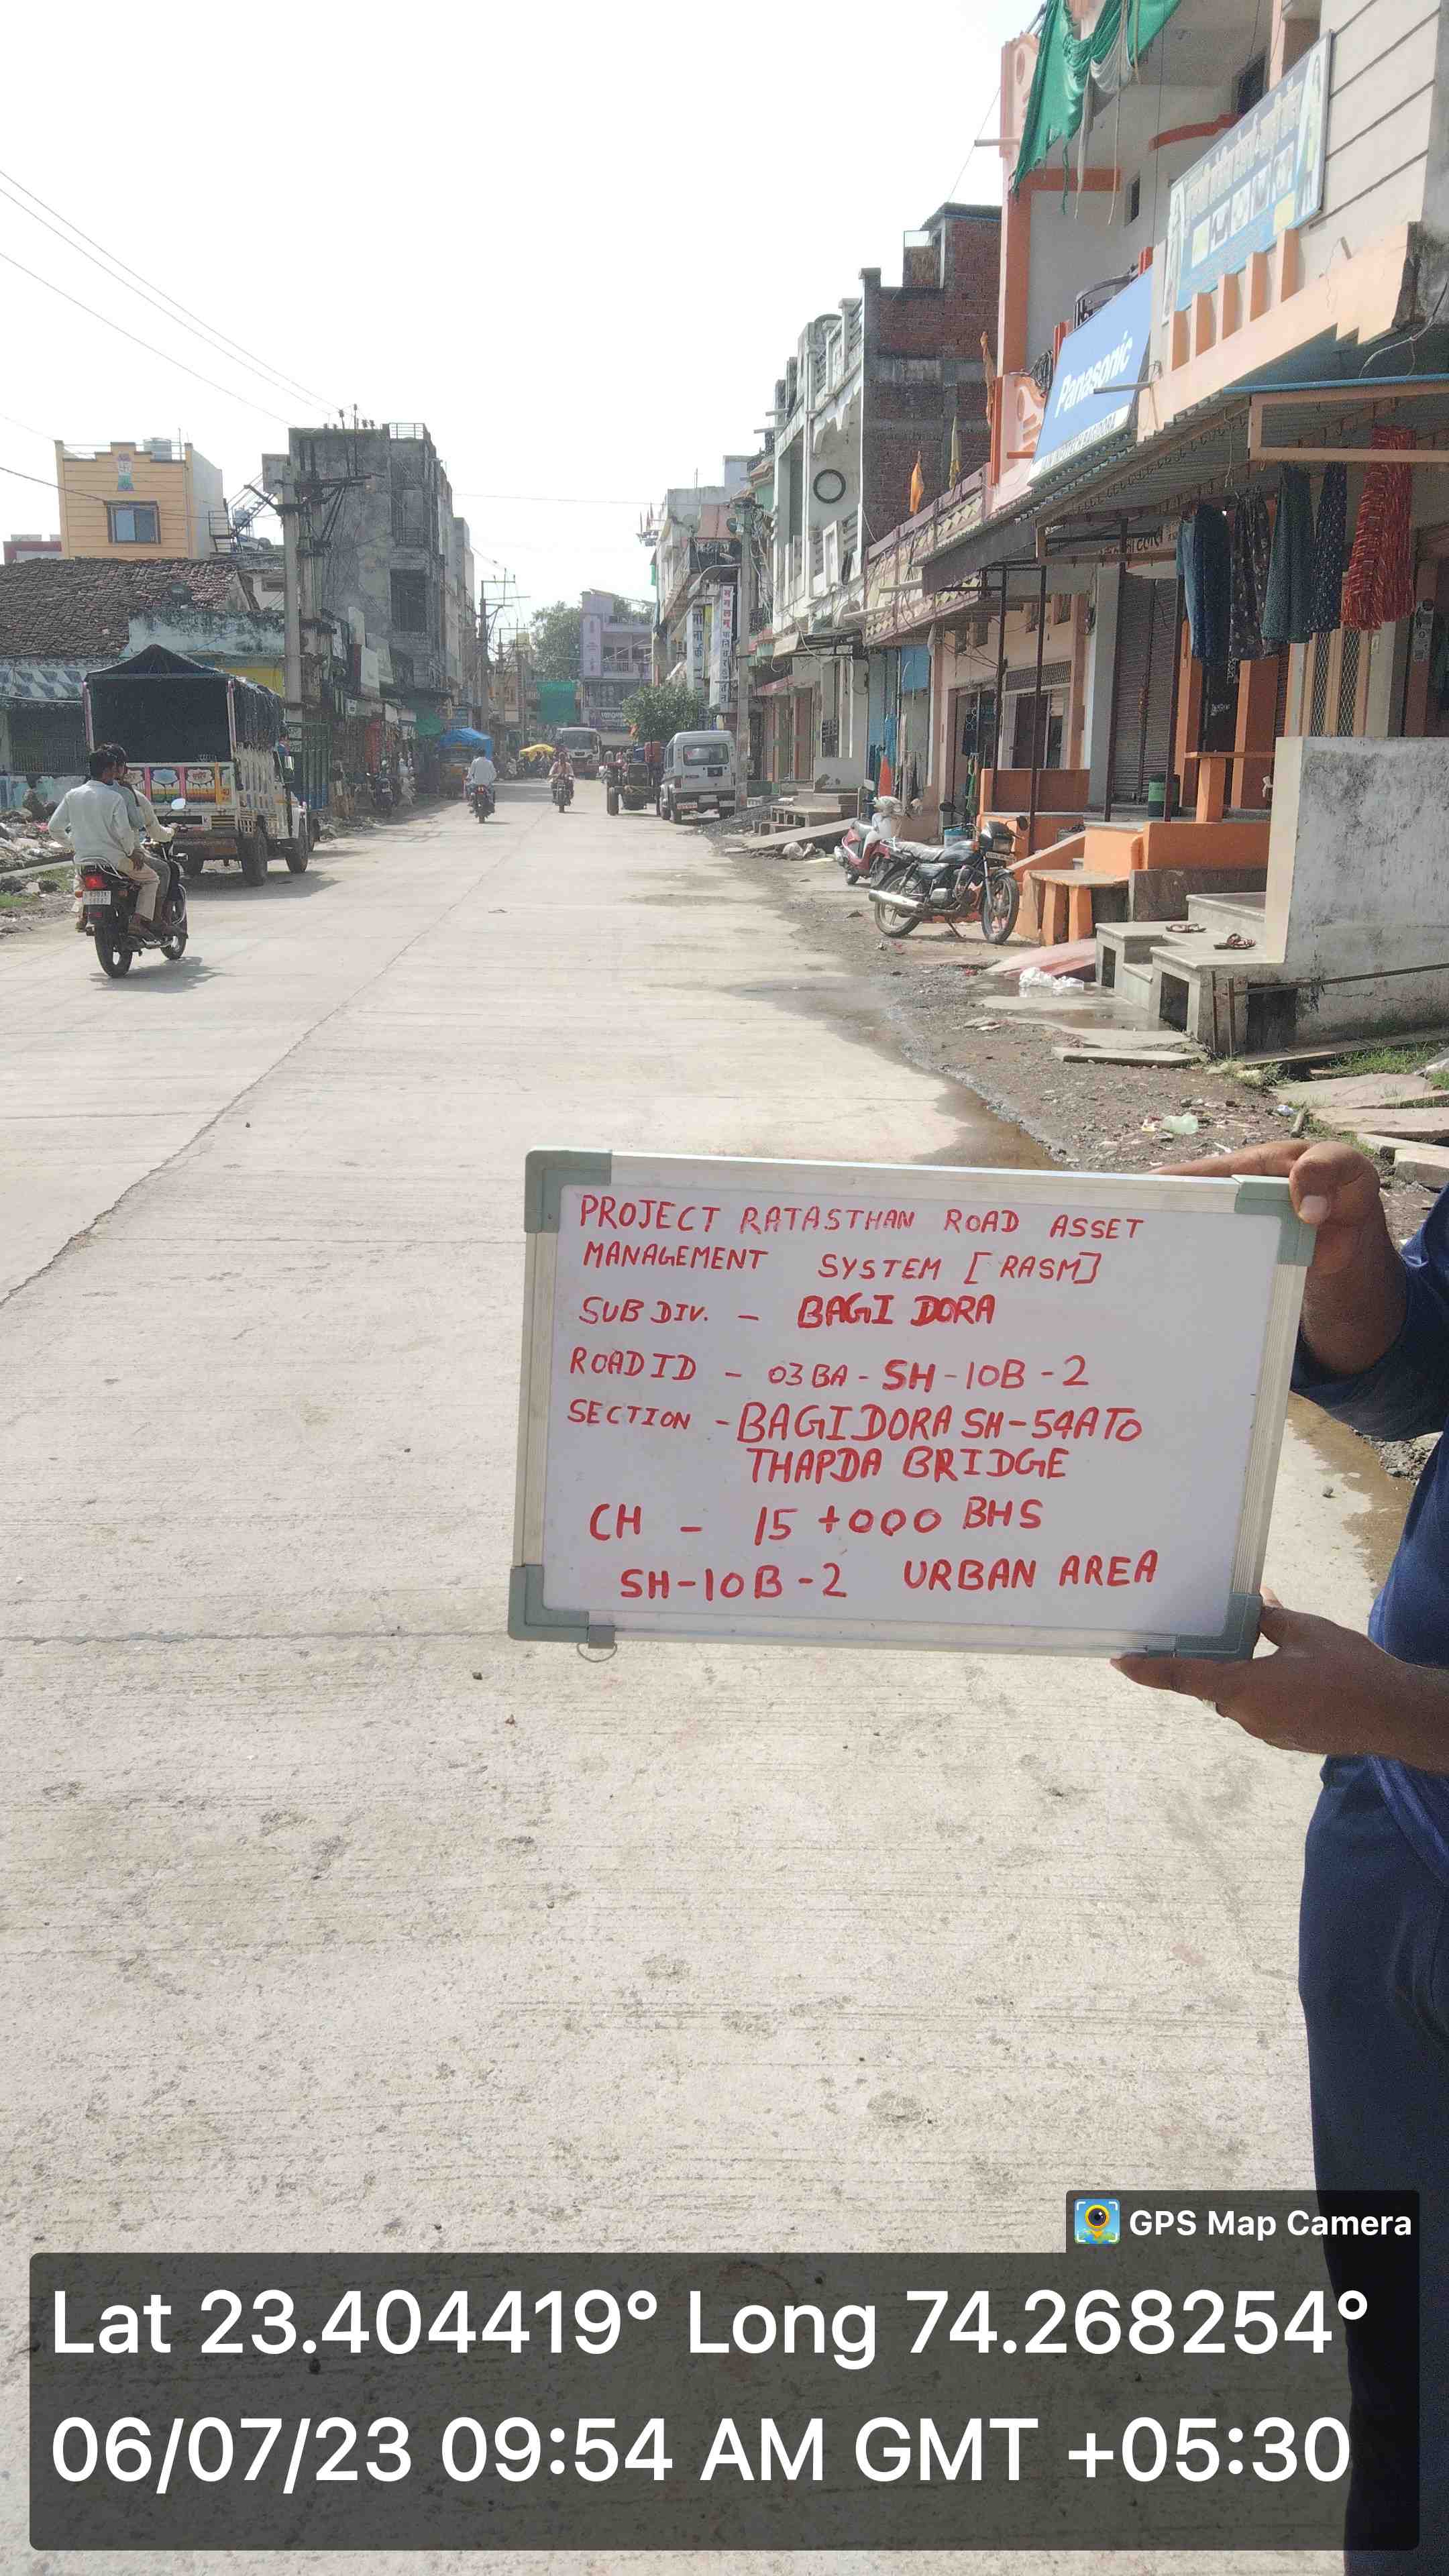 Panasonic
PROJECT RATASTHAN ROAD ASSET
MANAGEMENT SYSTEM [RASM]
SUB DIV. - BAGI DORA
ROAD ID - 03 BA - SH - 10B - 2
SECTION - BAGIDORA SH-54A TO
THAPDA BRIDGE
CH - 15 +000 BHS
SH-10B-2 URBAN AREA
GPS Map Camera
Lat 23.404419° Long 74.268254°
06/07/23 09:54 AM GMT +05:30